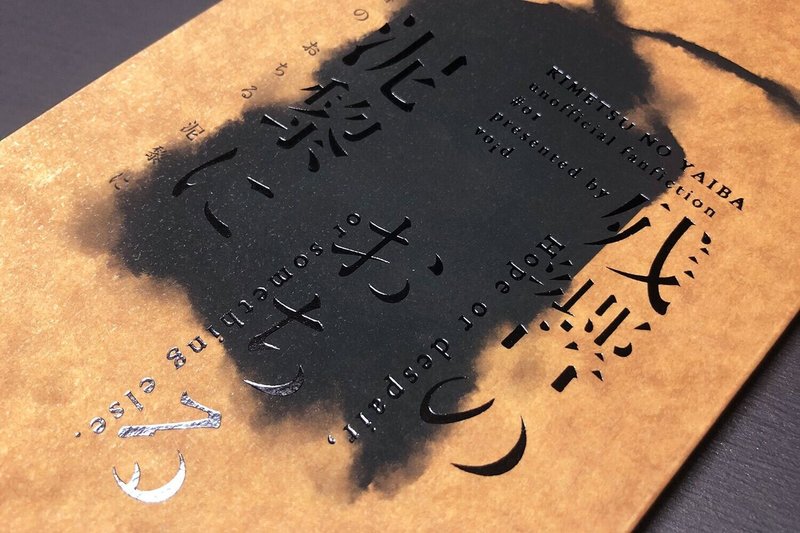 KIMETSU NO YAIBA
unofficial fanfiction
#01
presented by
void
残
の
おちる
泥黎に
Hope or despair,
or something else.
の
おちる
泥黎に